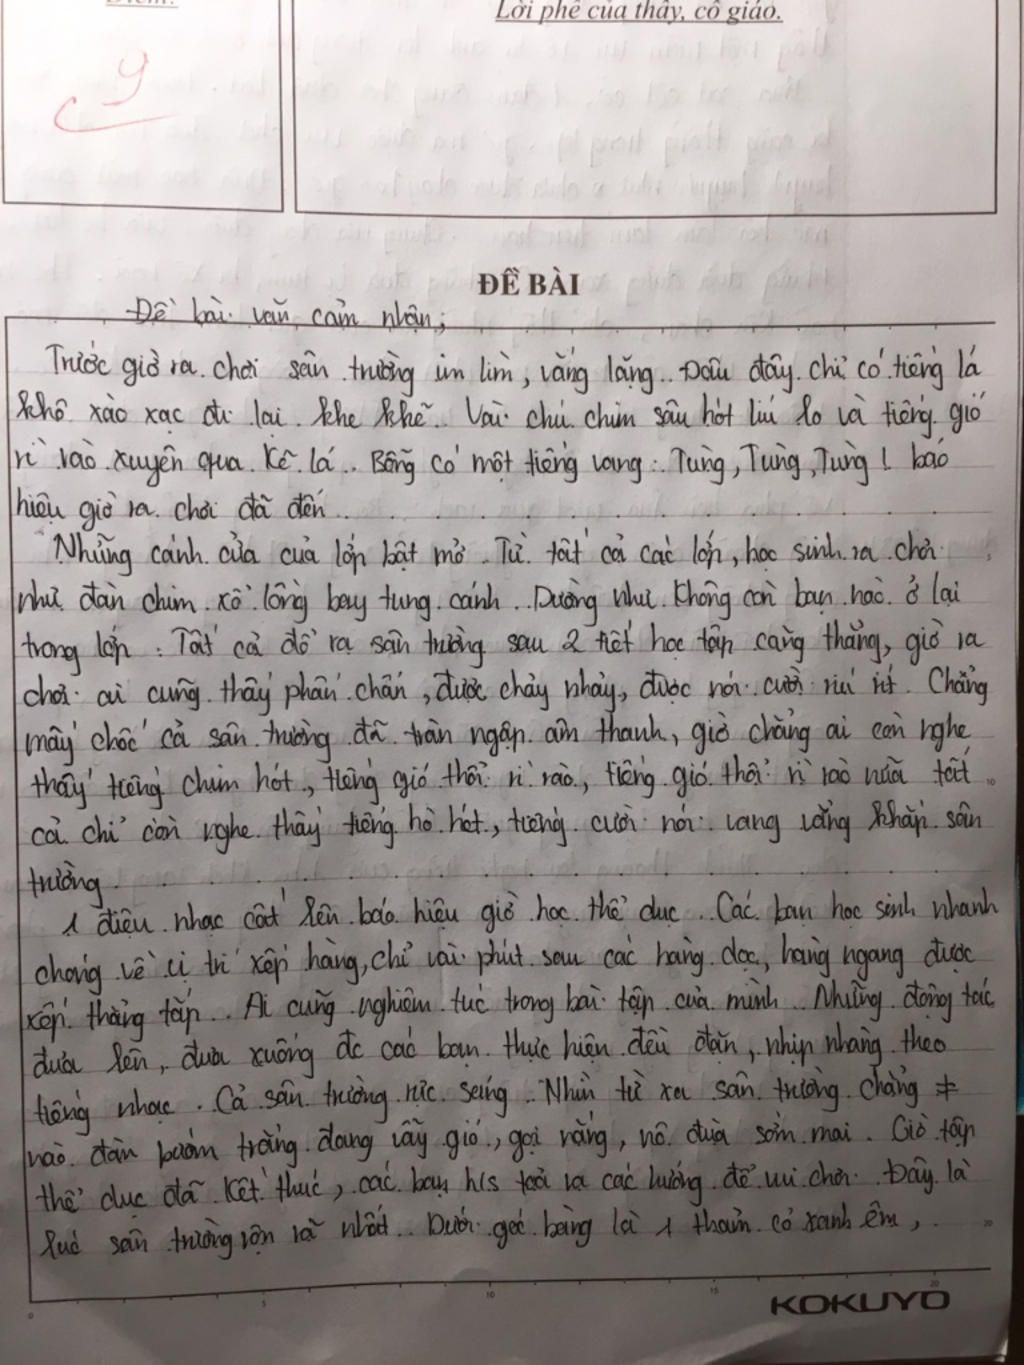 Điểm:
Lời phê của thầy, cô giáo.
9
ĐỀ BÀI
Đề bài văn cảm nhận;
Trước giờ ra chơi sân trường im lìm, vắng lặng.. Đâu đây chỉ có tiếng lá
khô xào xạc đi lại khe khẽ. Vài chú chim sâu hót líu lo và tiếng gió
rì rào xuyên qua kẽ lá.. Bỗng có một tiếng vang: Tùng, Tùng, Tùng! báo
hiệu giờ ra chơi đã đến.
Những cánh cửa của lớp bật mở. Từ tất cả các lớp, học sinh ra chơi
như đàn chim xổ lồng bay tung cánh.. Dường như không còn bạn nào ở lại
trong lớp. Tất cả đổ ra sân trường sau 2 tiết học tập căng thẳng, giờ ra
chơi ai cũng thấy phấn chấn, được chạy nhảy, được nói cười ríu rít. Chẳng
mấy chốc cả sân trường đã tràn ngập âm thanh, giờ chẳng ai còn nghe
thấy tiếng chim hót, tiếng gió thổi rì rào, tiếng gió thổi rì rào nữa tất
cả chỉ còn nghe thấy tiếng hò hét, tiếng cười nói vang vẳng khắp sân
trường.
1 điệu nhạc cất lên báo hiệu giờ học thể dục.. Các bạn học sinh nhanh
chóng về vị trí xếp hàng, chỉ vài phút sau các hàng dọc, hàng ngang được
xếp thẳng tắp.. Ai cũng nghiêm túc trong bài tập của mình.. Những động tác
đưa lên, đưa xuống đc các bạn thực hiện đều đặn, nhịp nhàng theo
tiếng nhạc. Cả sân trường rực sáng.. Nhìn từ xa sân trường chẳng ≠
nào đàn bướm trắng đang vẫy gió, gọi nắng, nô đùa sớm mai. Giờ tập
thể dục đã kết thúc, các bạn h/s toả ra các hướng để vui chơi. Đây là
lúc sân trường rộn rã nhất.. Dưới gốc bàng là 1 thảm cỏ xanh êm,
KOKUYO